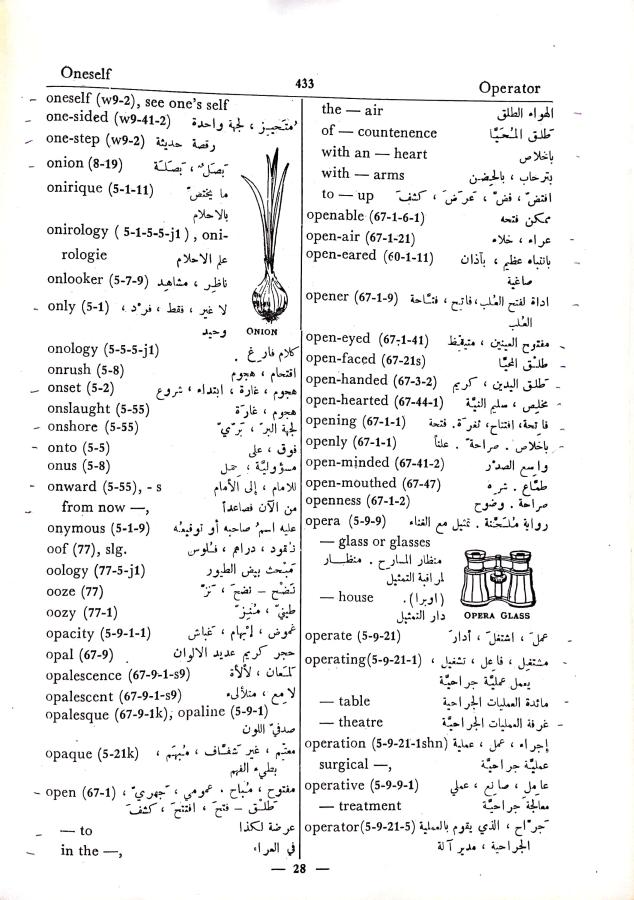 Oneself
433
Operator
– oneself (w9-2), see one's self
– one-sided (w9-41-2) مُتَحيز ، لجهة واحدة
one-step (w9-2) رقصة حديثة
– onion (8-19) بَصَلٌ ، بَصَلَة
onirique (5-1-11) ما يختصّ
بالاحلام
onirology ( 5-1-5-5-j1) , oni-
rologie علم الاحلام
onlooker (5-7-9) ناظر ، مشاهد
– only (5-1) لا غير ، فقط ، فرد ،
وحيد
ONION
onology (5-5-5-j1) كلام فارغ .
onrush (5-8) اقتحام ، هجوم
– onset (5-2) هجوم ، غارة ، ابتداء ، شروع
onslaught (5-55) هجوم ، غارَة
– onshore (5-55) لجهة البرّ ، بَرّيّ
– onto (5-5) فوق ، على
onus (5-8) مسؤولية ، حِمل
– onward (5-55), - s للامام ، إلى الأمام
from now —, من الآن فصاعداً
onymous (5-1-9) عليه اسم صاحبه أو توقيعه
oof (77), slg. نقود ، دراهم ، فلوس
oology (77-5-j1) مبحث بيض الطيور
ooze (77) نَضَح – نضح ، نزّ
oozy (77-1) طينيّ ،
opacity (5-9-1-1) غموض ، إبهام ، غباش
opal (67-9) حجر كريم عديد الالوان
opalescence (67-9-1-s9) لمعان ، لألأة
opalescent (67-9-1-s9) لامع ، متلألىء
opalesque (67-9-1k), opaline (5-9-1)
صدفيّ اللون
opaque (5-21k) معتم ، غير شفّاف ، مُبهم ،
بطيء الفهم
– open (67-1) مفتوح ، مُباح . عمومي ، جهريّ ،
طلق – فتح ، افتتح ، كشف
— to عرضة لكذا
in the —, في العراء
the — air الهواء الطلق
of — countenence طلق المُحَيّا
with an — heart باخلاص
with — arms بترحاب ، بالحِضن
to — up افتضّ ، فضّ ، عرض ، كشف
openable (67-1-6-1) ممكن فتحه
open-air (67-1-21) عراء ، خلاء
open-eared (60-1-11) بانتباه عظيم ، بآذان
صاغية
opener (67-1-9) اداة لفتح العُلب، فاتح ، فتّاحة
العُلب
open-eyed (67-1-41) مفتوح العينين ، متيقظ
open-faced (67-21s) طلق المحيّا
open-handed (67-3-2) طلق اليدين ، كريم
open-hearted (67-44-1) مخلِص ، سليم النيّة
opening (67-1-1) فاتحة، افتتاح، ثغرة . فتحة
openly (67-1-1) باخلاص . صراحةً . علناً
open-minded (67-41-2) واسع الصدر
open-mouthed (67-47) طمّاع . شره
openness (67-1-2) صراحة . وضوح
opera (5-9-9) رواية مُلحّنة . تمثيل مع الغناء
— glass or glasses
منظار المسارح . منظار
لمراقبة التمثيل
— house (اوبرا) .
دار التمثيل
OPERA GLASS
operate (5-9-21) عمل ، اشتغل ، أدار
operating(5-9-21-1) مشتغل ، فاعل ، تشغيل ،
يعمل عمليّة جراحيّة
— table مائدة العمليات الجراحية
— theatre غرفة العمليات الجراحيّة
operation (5-9-21-1shn) إجراء ، عمل ، عملية
surgical —, عمليّة جراحيّة
operative (5-9-9-1) عامل ، صانع ، عملي
— treatment معالجة جراحيّة
operator(5-9-21-5) جرّاح ، الذي يقوم بالعملية
الجراحية ، مدير آلة
— 28 —